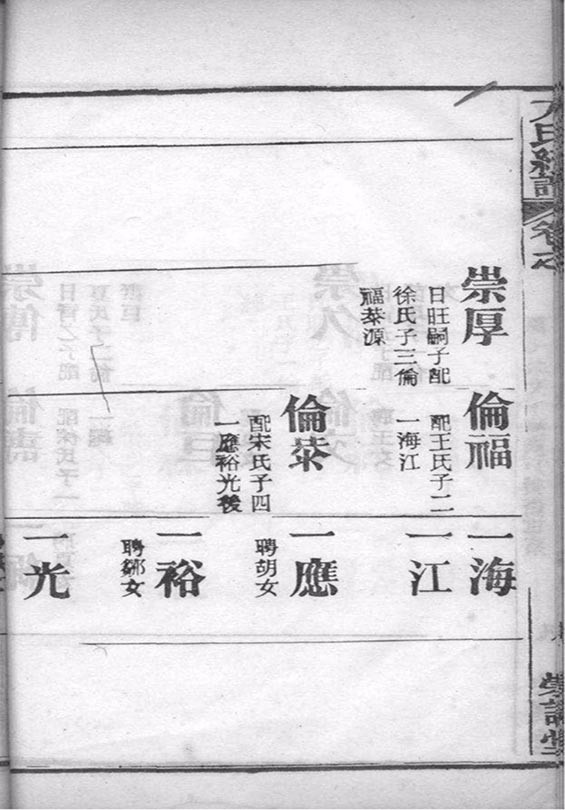 氏續譜
崇厚
日旺嗣子配
徐氏子三倫
福恭源
倫福
配王氏子二
一海江
倫恭
配宋氏子四
一應裕光後
一海
一江
一應
聘胡女
一裕
聘鄒女
一光